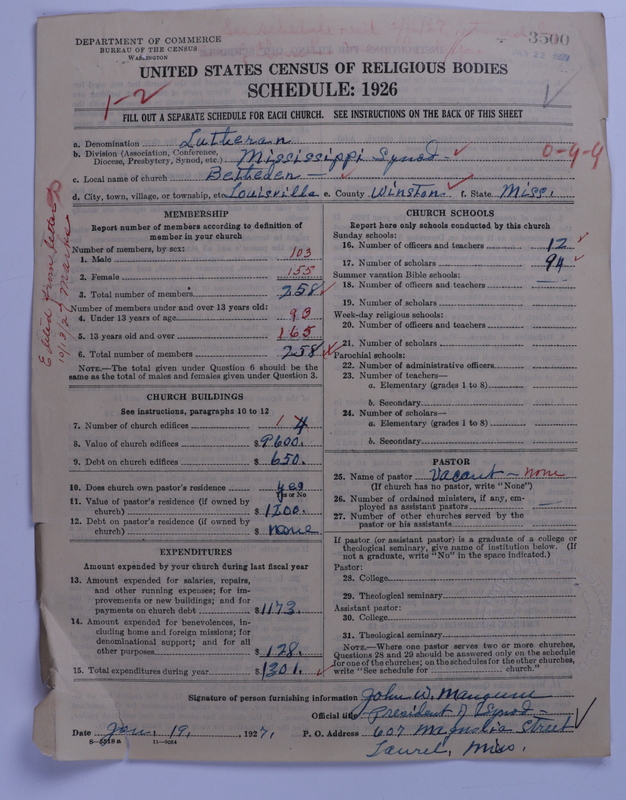 3500
DEPARTMENT OF COMMERCE
BUREAU OF THE CENSUS
WASHINGTON
UNITED STATES CENSUS OF RELIGIOUS BODIES
SCHEDULE: 1926
1-2
FILL OUT A SEPARATE SCHEDULE FOR EACH CHURCH. SEE INSTRUCTIONS ON THE BACK OF THIS SHEET
a. Denomination Lutheran
b. Division (Association, Conference, Diocese, Presbytery, Synod, etc.) Mississippi Synod
0-9-9
c. Local name of church Betheden
d. City, town, village, or township, etc. Louisville e. County Winston f. State Miss.
MEMBERSHIP
Report number of members according to definition of
member in your church
Number of members, by sex:
1. Male 103
2. Female 155
3. Total number of members 258
Number of members under and over 13 years old:
4. Under 13 years of age 93
5. 13 years old and over 165
6. Total number of members 258
NOTE.—The total given under Question 6 should be the
same as the total of males and females given under Question 3.
CHURCH BUILDINGS
See instructions, paragraphs 10 to 12
7. Number of church edifices 1
8. Value of church edifices $ 9600.
9. Debt on church edifices $ 650.
10. Does church own pastor's residence? yes
Yes or No
11. Value of pastor's residence (if owned by
church) $ 1200.
12. Debt on pastor's residence (if owned by
church) $ none
EXPENDITURES
Amount expended by your church during last fiscal year
13. Amount expended for salaries, repairs,
and other running expenses; for im-
provements or new buildings; and for
payments on church debt $ 1173.
14. Amount expended for benevolences, in-
cluding home and foreign missions; for
denominational support; and for all
other purposes $ 128.
15. Total expenditures during year $ 1301.
CHURCH SCHOOLS
Report here only schools conducted by this church
Sunday schools:
16. Number of officers and teachers 12
17. Number of scholars 94
Summer vacation Bible schools:
18. Number of officers and teachers
19. Number of scholars
Week-day religious schools:
20. Number of officers and teachers
21. Number of scholars
Parochial schools:
22. Number of administrative officers
23. Number of teachers—
a. Elementary (grades 1 to 8)
b. Secondary
24. Number of scholars—
a. Elementary (grades 1 to 8)
b. Secondary
PASTOR
25. Name of pastor Vacant - none
(If church has no pastor, write "None")
26. Number of ordained ministers, if any, em-
ployed as assistant pastors
27. Number of other churches served by the
pastor or his assistants
If pastor (or assistant pastor) is a graduate of a college or
theological seminary, give name of institution below. (If
not a graduate, write "No" in the space indicated.)
Pastor:
28. College
29. Theological seminary
Assistant pastor:
30. College
31. Theological seminary
NOTE.—Where one pastor serves two or more churches,
Questions 28 and 29 should be answered only on the schedule
for one of the churches; on the schedules for the other churches,
write "See schedule for church."
Signature of person furnishing information John W. Mangum
Official title President of Synod
Date Jan. 19, 1927. P. O. Address 607 Magnolia Street
8-5518a 11-9084
Laurel, Miss.